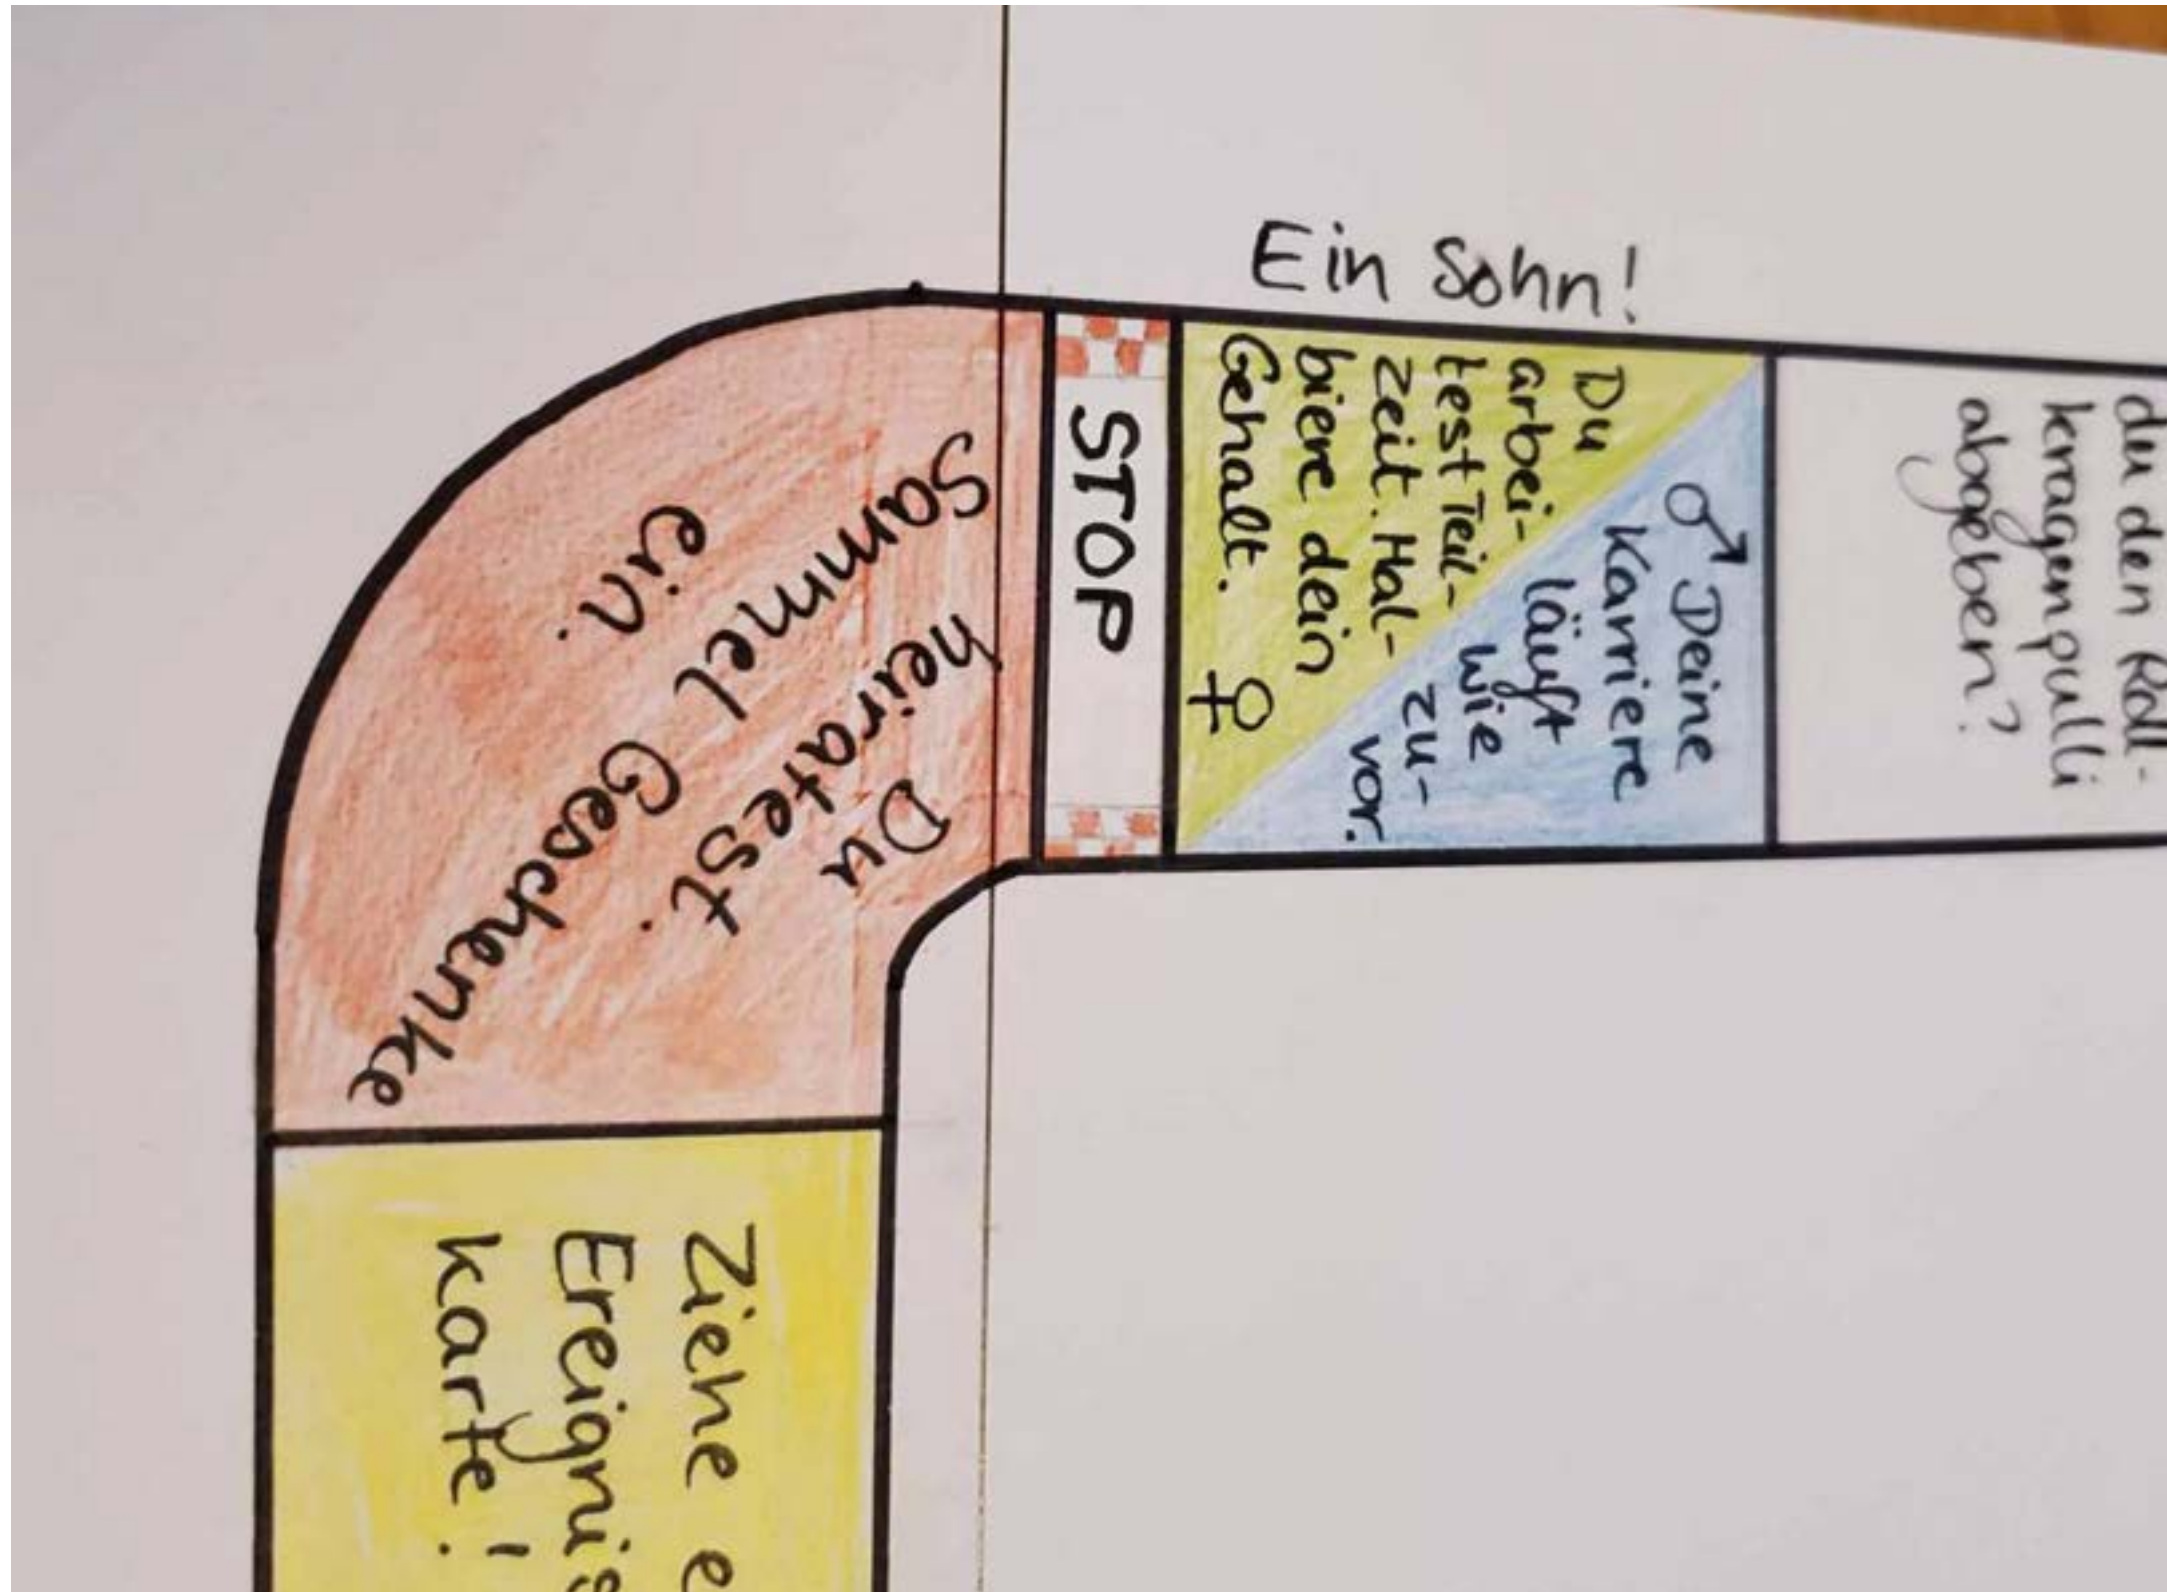 Ein Sohn!
du den Roll-
kragenpulli
abgeben?
♂ Deine
Karriere
läuft
wie
zu-
vor.
Du
arbei-
test Teil-
zeit. Hal-
biere dein
Gehalt. ♀
STOP
Du
heiratest.
Sammel Geschenke
ein.
Ziehe e
Ereignis
karte!